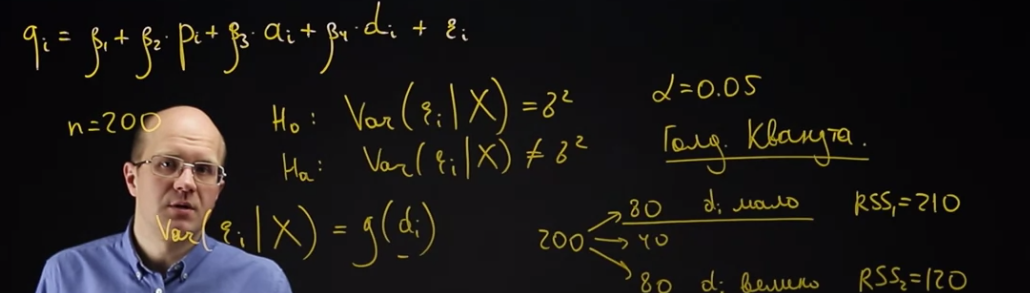 qᵢ = β₁ + β₂ · pᵢ + β₃ · aᵢ + β₄ · dᵢ + εᵢ
n=200
H₀: Var(εᵢ|X) = б²
Hₐ: Var(εᵢ|X) ≠ б²
Var(εᵢ|X) = g(dᵢ)
α=0.05
Голд. Квандта.
200
80 dᵢ мало RSS₁=210
40
80 dᵢ велико RSS₂=120